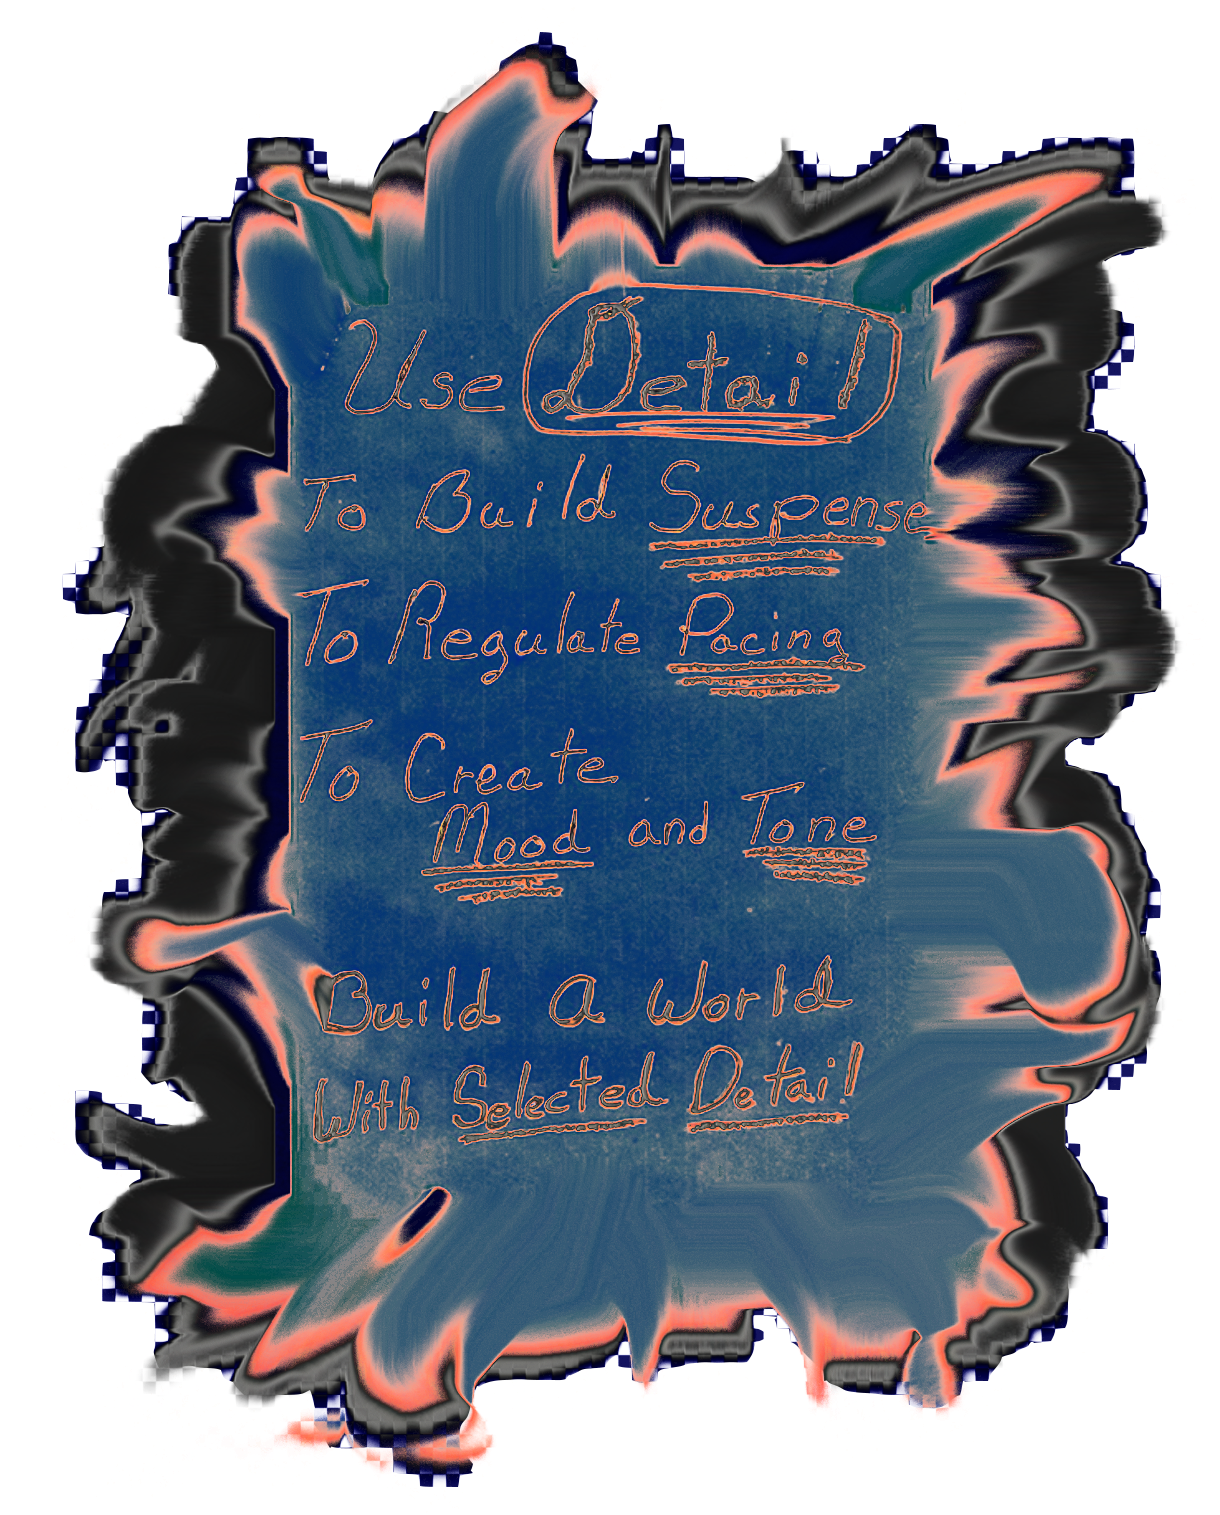 Use Detail
To Build Suspense
To Regulate Pacing
To Create
Mood and Tone
Build A World
With Selected Detail!